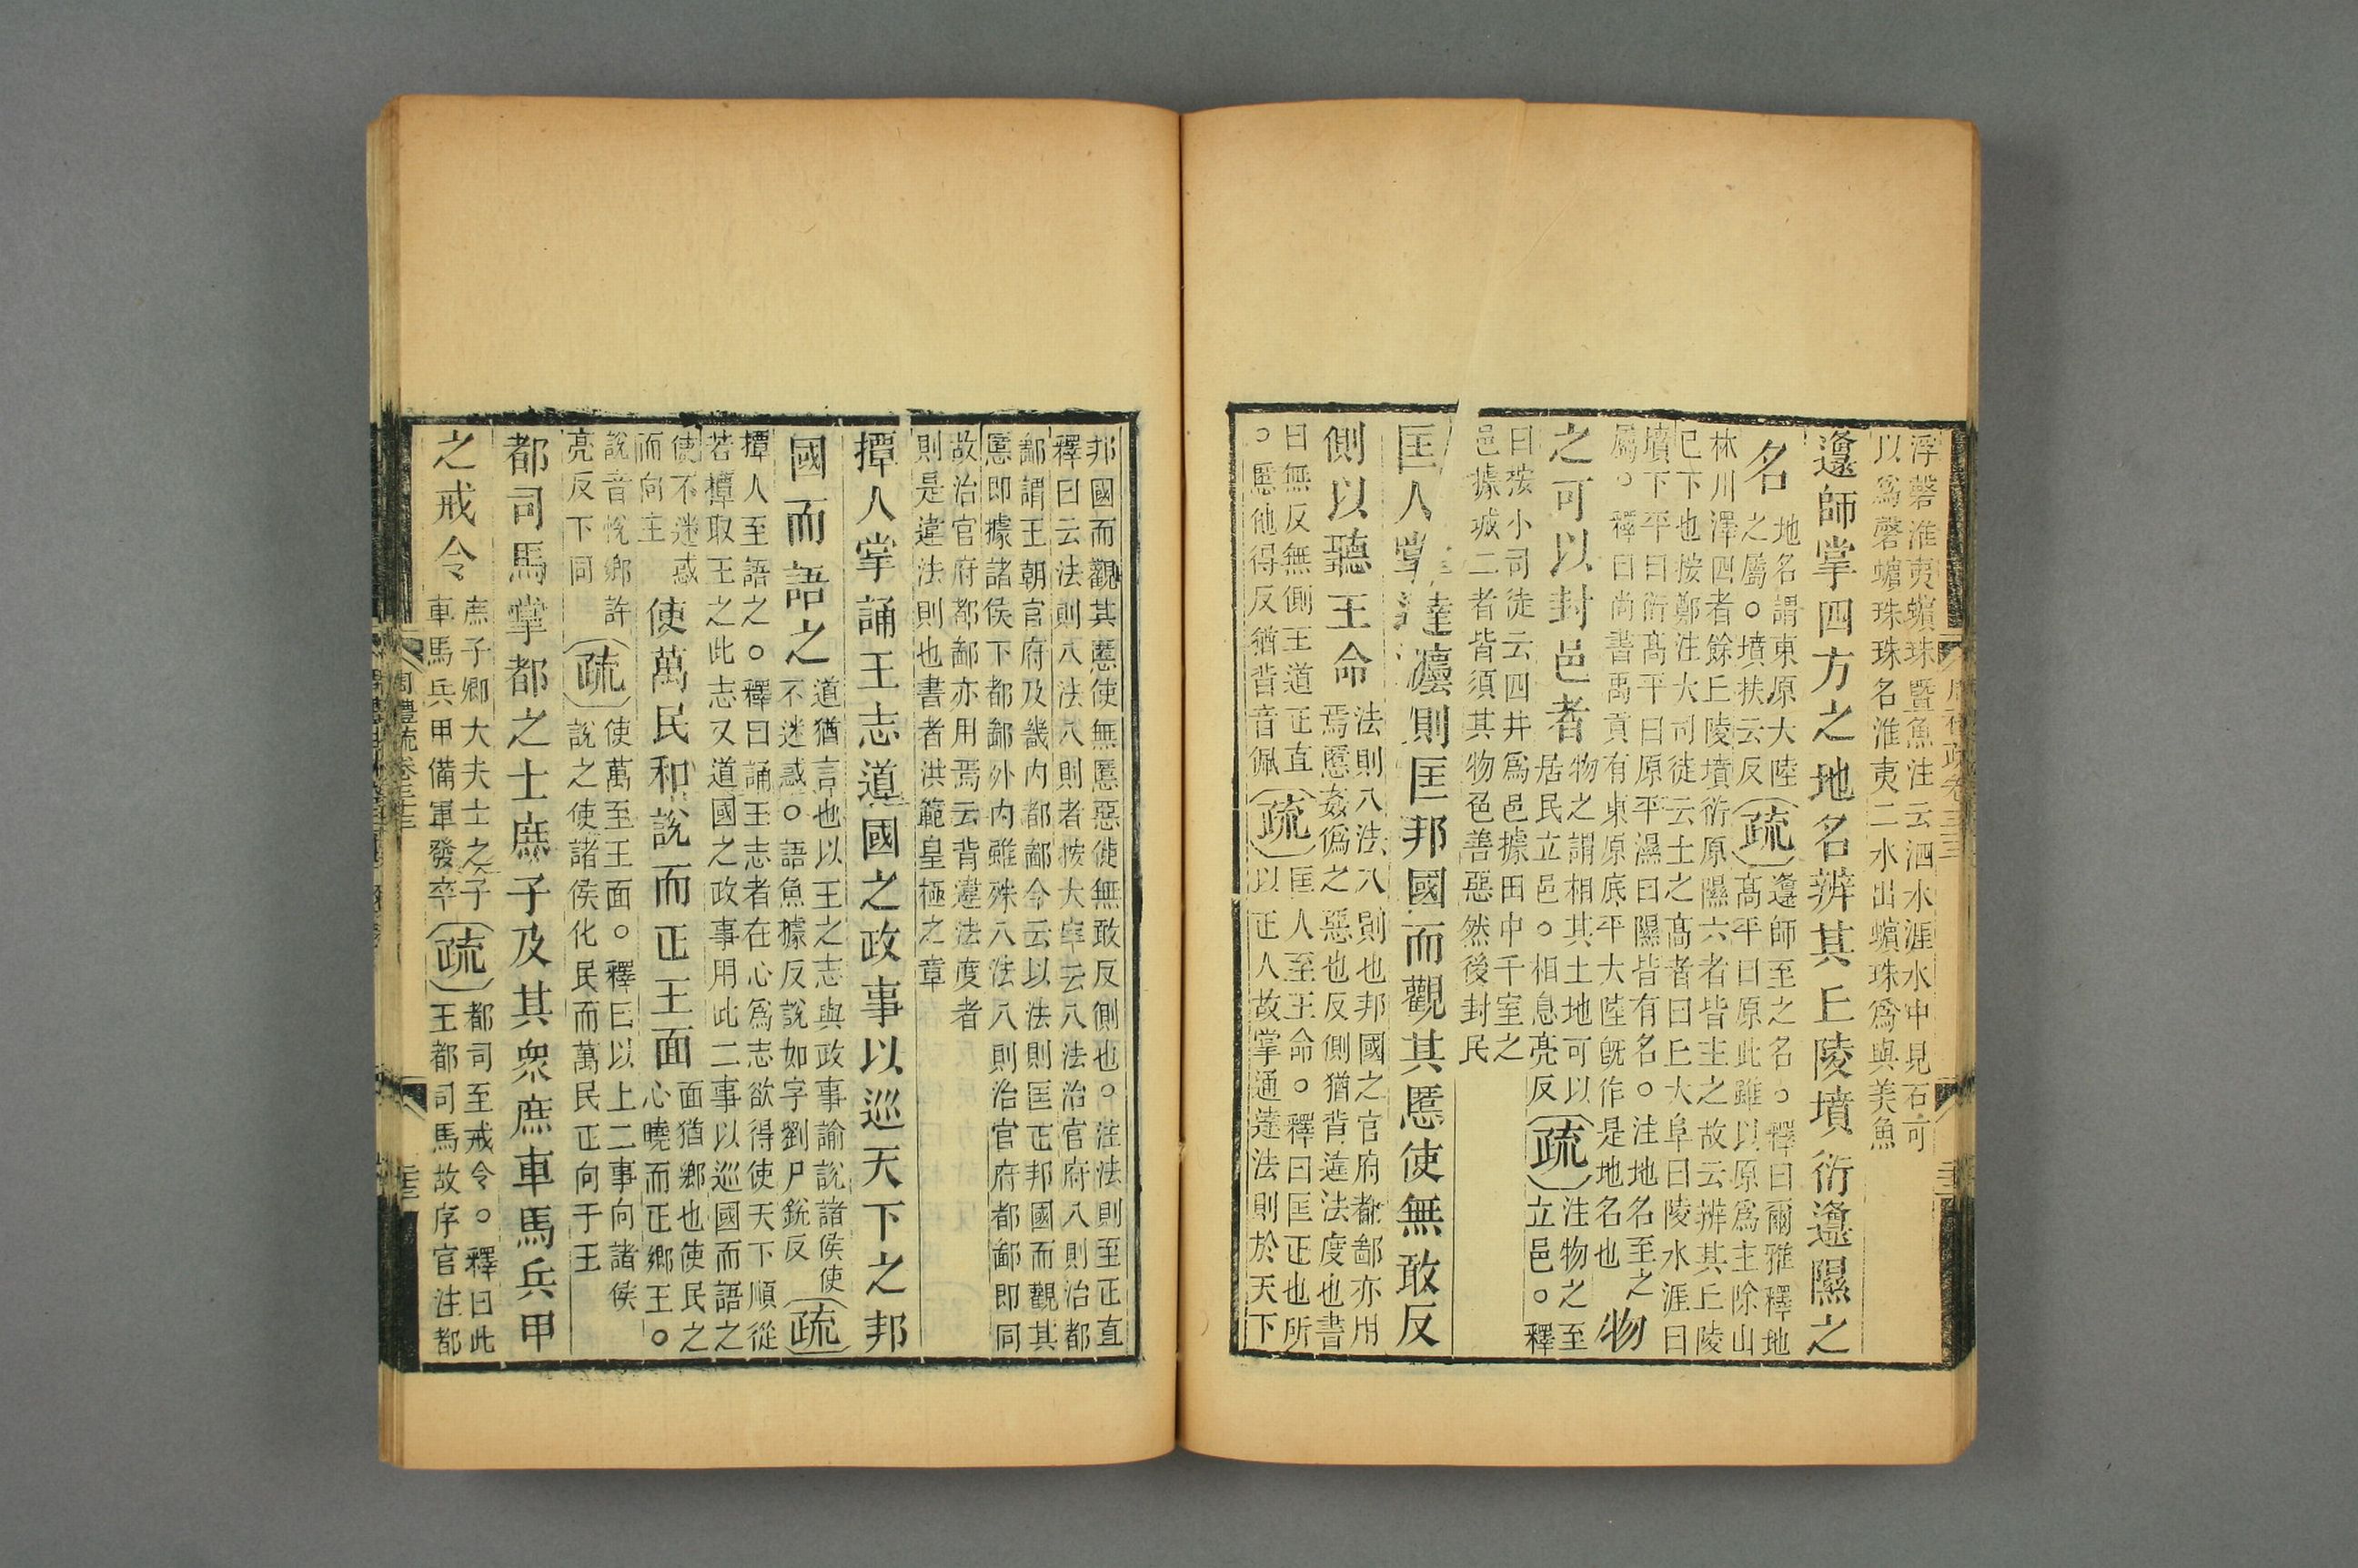 浮磬淮夷蠙珠曁魚注云泗水涯水中見石可
以爲磬蠙珠珠名淮夷二水出蠙珠爲與美魚
邍師掌四方之地名辨其丘陵墳衍邍隰之
名
地名謂東原大陸
之屬○墳扶云反
疏
邍師至之名○釋曰爾雅釋地
高平曰原此雖以原爲主除山
林川澤四者餘丘陵墳衍原隰六者皆主之故云辨其丘陵
巳下也按鄭注大司徒云土之高者曰丘大阜曰陵水涯曰
墳下平曰衍高平曰原下濕曰隰皆有名○注地名至之
屬○釋曰尚書禹貢有東原底平大陸旣作是地名也
物
之可以封邑者
物之謂相其土地可以
居民立邑○相息亮反
疏
注物之至
立邑○釋
曰按小司徒云四井爲邑據田中千室之
邑據城二者皆須其物色善惡然後封民
匡人掌達灋則匡邦國而觀其慝使無敢反
側以聽王命
法則八法八則也邦國之官府都鄙亦用
焉慝姦僞之惡也反側猶背違法度也書
曰無反無側王道正直
○慝他得反猶背音佩
疏
匡人至王命○釋曰匡正也所
以正人故掌通達法則於天下
邦國而觀其慝使無慝惡使無敢反側也○注法則至正直
釋曰云法則八法八則者按大宰云八法治官府八則治都
鄙謂王朝官府及畿內都鄙今云以法則匡正邦國而觀其
慝即據諸侯下都鄙外內雖殊八法八則治官府都鄙即同
故治官府都鄙亦用焉云背違法度者
則是違法則也書者洪範皇極之章
撢人掌誦王志道國之政事以巡天下之邦
國而語之
道猶言也以王之志與政事諭說諸侯使
不迷惑○語魚據反說如字劉尸銳反
疏
撢人至語之○釋曰誦王志者在心爲志欲得使天下順從
若撢取王之此志又道國之政事用此二事以巡國而語之
使不迷惑
而向主
使萬民和說而正王面
面猶鄉也使民之
心曉而正鄉王○
說音悅鄉許
亮反下同
疏
使萬至王面○釋曰以上二事向諸侯
說之使諸侯化民而萬民正向于王
都司馬掌都之士庶子及其眾庶車馬兵甲
之戒令
庶子卿大夫士之子
車馬兵甲備軍發卒
疏
都司至戒令○釋曰此
王都司馬故序官注都
周禮疏卷三十三